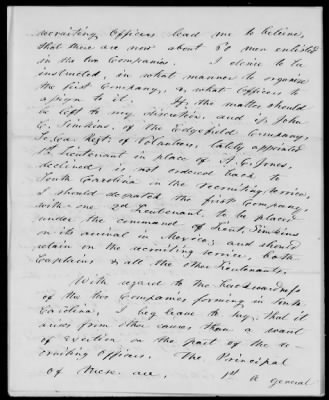 recruiting Officers lead me to believe,
that there are now about 50 men enlisted
in the two Companies. I desire to be
instructed, in what manner to organise
the first Company, & what Officers to
assign to it. If the matter should
be left to my discretion, and if John
C. Simkins, of the Edgefield Company,
So. Ca. Regt. of Volunteers, lately appointed
1st Lieutenant in place of A. G. Jones,
declined, is not ordered back to
South Carolina on the recruiting service,
I should despatch the first Company,
with one 2nd Lieutenant, to be placed
under the command of Lieut. Simkins
on its arrival in Mexico; and should
retain on the recruiting service, both
Captains & all the other Lieutenants.
With regard to the backwardness
of the two Companies forming in South
Carolina, I beg leave to say, that it
arises from other causes than a want
of exertion on the part of the re-
cruiting Officers. The Principal
of these are, 1st A general